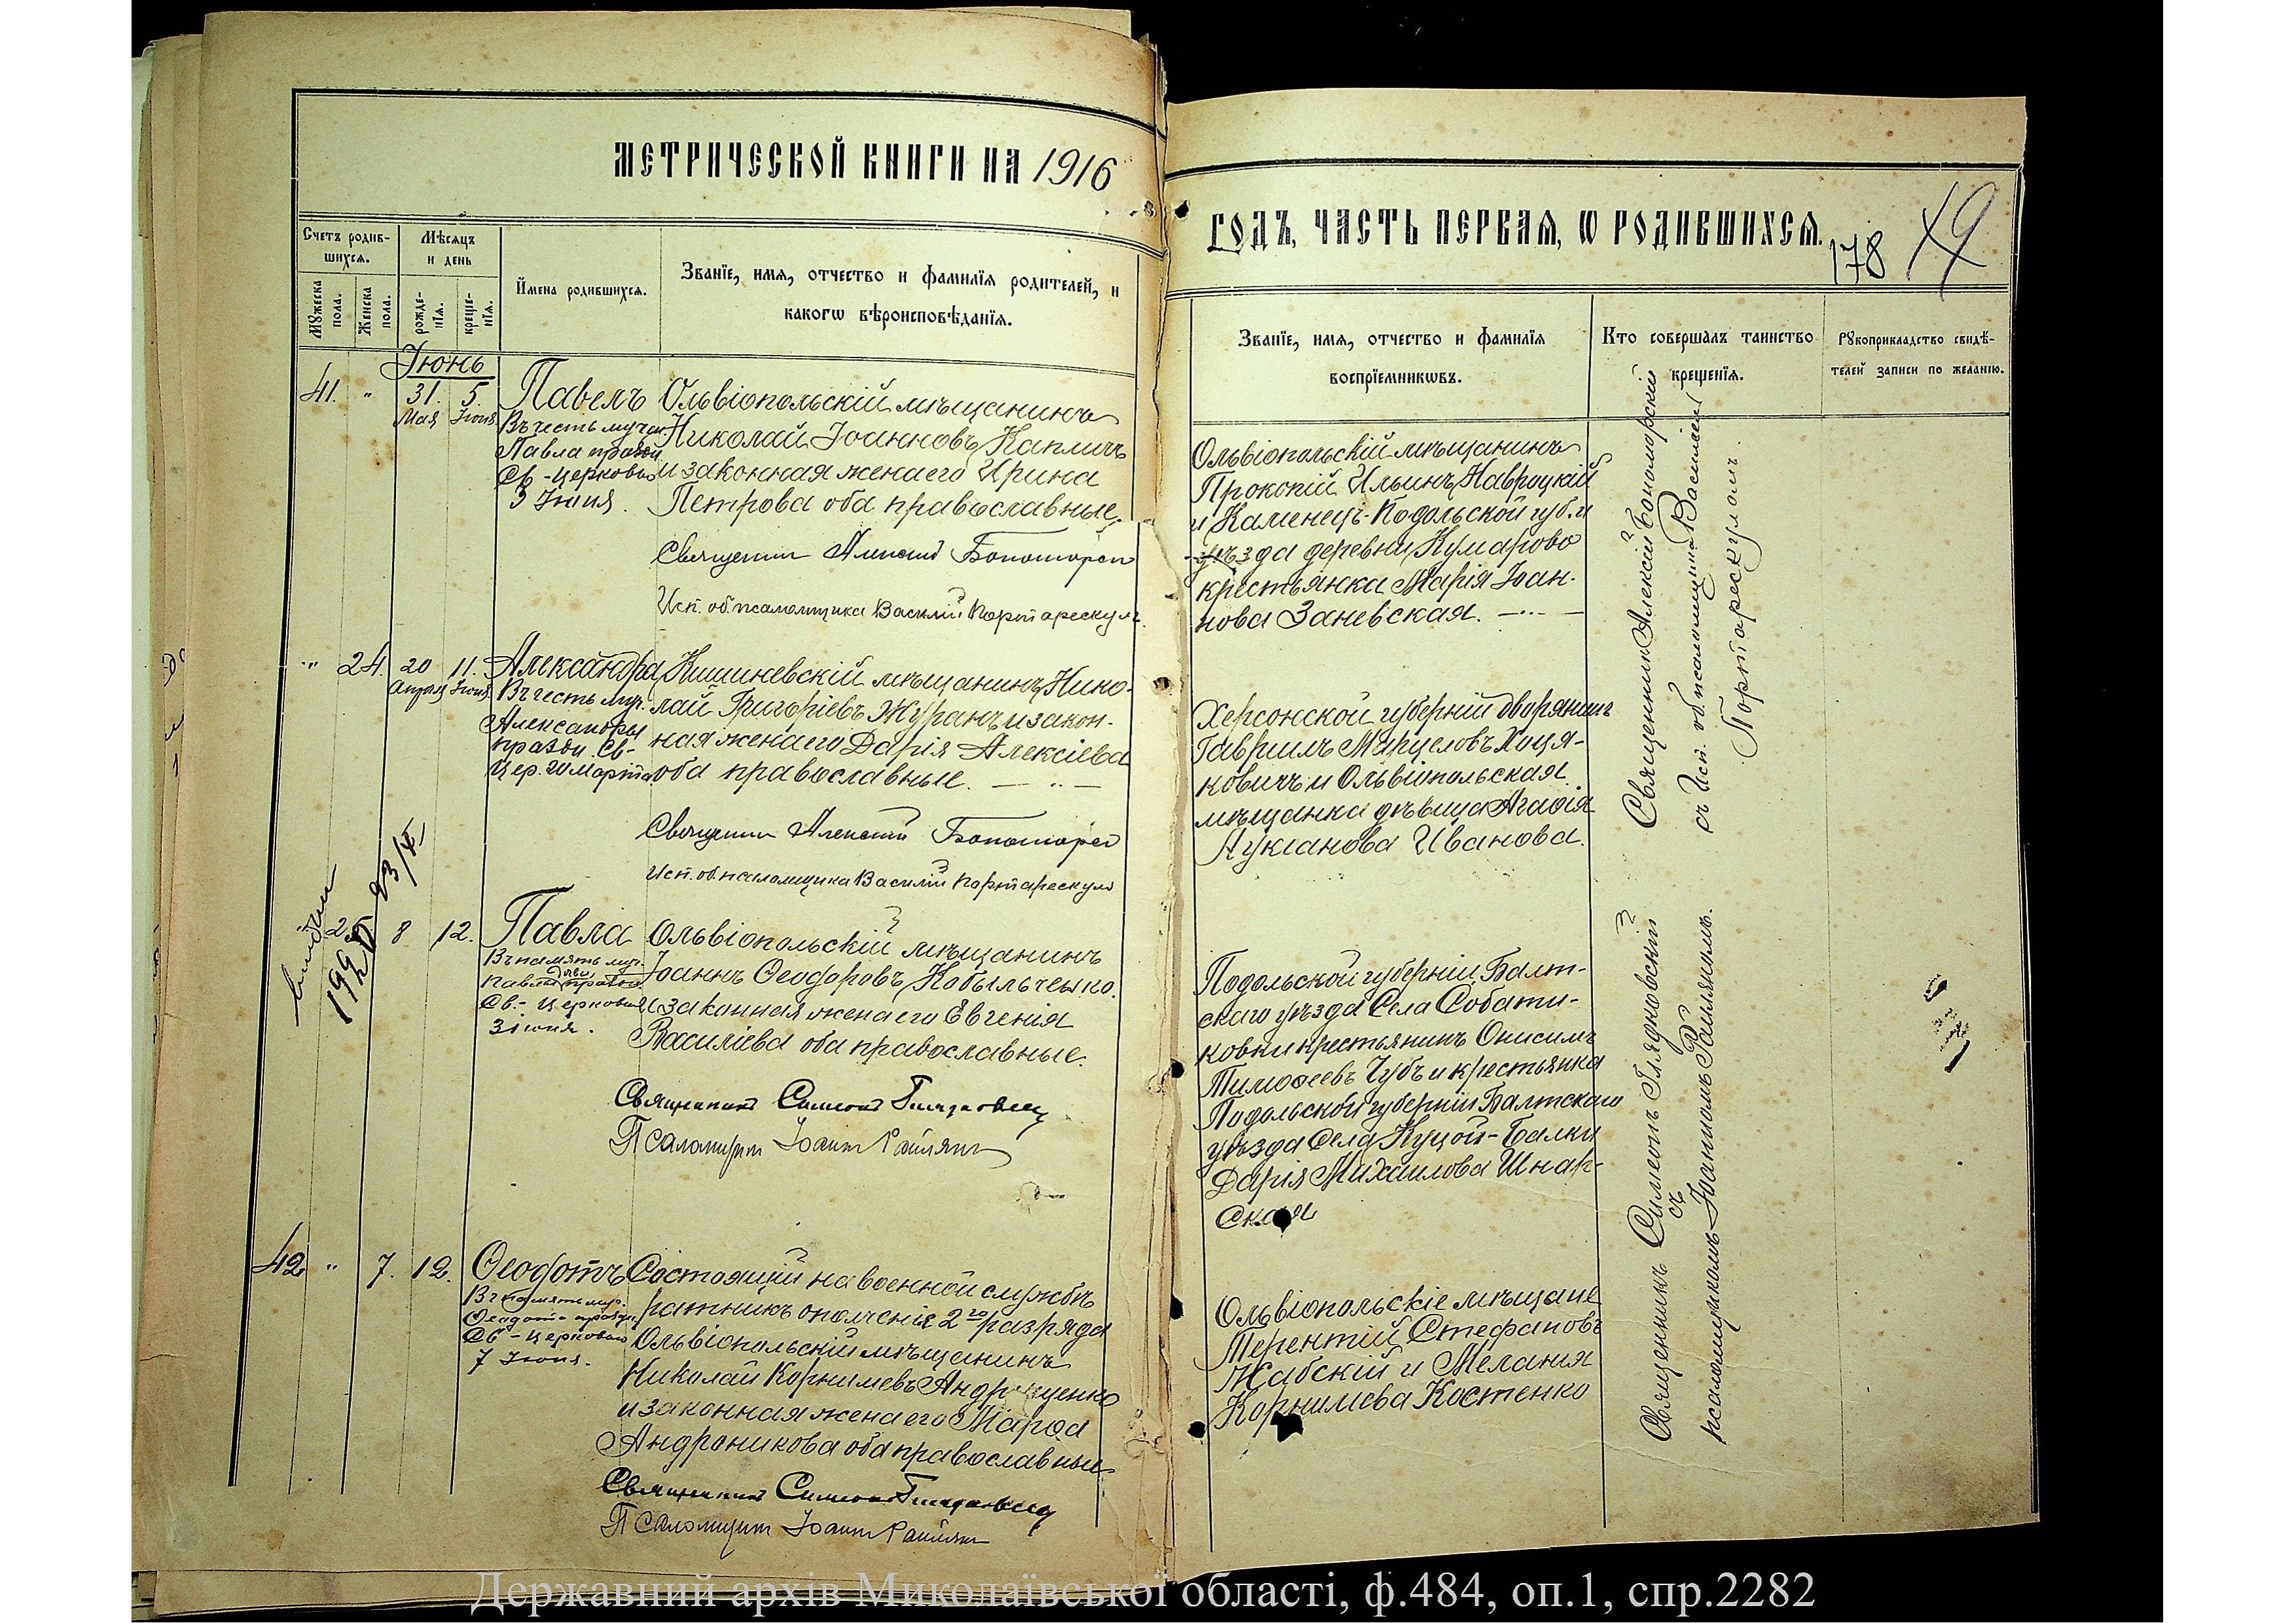 МЕТРИЧЕСКОЙ КНИГИ НА 1916
ГОДЪ, ЧАСТЬ ПЕРВАЯ, Ѡ РОДИВШИХСЯ.
178
49
Счетъ родив-
шихся.
Мужеска
пола.
Женска
пола.
Мѣсяцъ
и день
рожде-
нія.
креще-
нія.
Имена родившихся.
Званіе, имя, отчество и фамилія родителей, и
какогѡ вѣроисповѣданія.
Званіе, имя, отчество и фамилія
воспріемникѡвъ.
Кто совершалъ таинство
крещенія.
Рукоприкладство свидѣ-
телей записи по желанію.
Іюнь
41. " 31. 5.
Мая Іюня
Павелъ
Въ честь муч.
Павла праздн
Св. церковью
3 Іюня.
Ольвіопольскій мѣщанинъ
Николай Іоанновъ Капличъ
и законная жена его Ирина
Петрова оба православные.
Священникъ Алексій
Исп. об. псаломщика Василій Портарескулъ.
Ольвіопольскій мѣщанинъ
Прокопій Ильинъ Навроцкій
и Каменецъ-Подольской губ. и
уѣзда деревни Кумарово
крестьянка Марія Іоан-
нова Заневская.
" 24. 20 11.
Апрѣля Іюня
Александра
Въ честь муч.
Александры
праздн. Св.
Цер. 20 Марта.
Кишиневскій мѣщанинъ Нико-
лай Григоріевъ Журанъ и закон-
ная жена его Дарія Алексіева
оба православные.
Священникъ Алексій
Исп. об. псаломщика Василій Портарескулъ
Херсонской губерніи дворянинъ
Гавріилъ Марцеловъ Хоця-
ковичъ и Ольвіопольская
мѣщанка дѣвица Агафія
Лукіанова Иванова.
Священникъ Алексій
съ Исп. об. псаломщика Василіемъ
Портарескуломъ.
" 25 8 12.
1992
Павла
Въ память муч.
Павлы дѣвы праздн.
Св. церковью
3 іюня.
Ольвіопольскій мѣщанинъ
Іоаннъ Ѳеодоровъ Кобыльченко
и законная жена его Евгенія
Василіева оба православные.
Священникъ Симеонъ Глядковскій
Псаломщикъ Іоаннъ Раилянъ
Подольской губерніи Балт-
скаго уѣзда села Собати-
ковки крестьянинъ Онисимъ
Тимоѳеевъ Чубъ и крестьянка
Подольской губерніи Балтскаго
уѣзда села Куцой-Балки
Дарія Михаилова Шнар-
ская
42 " 7. 12.
Ѳеодотъ
Въ память муч.
Ѳеодота праздн.
Св. церковью
7 Іюня.
Состоящій на военной службѣ
ратникъ ополченія 2го разряда
Ольвіопольскій мѣщанинъ
Николай Корниліевъ Андрущенко
и законная жена его Марѳа
Андроникова оба православные
Священникъ Симеонъ Глядковскій
Псаломщикъ Іоаннъ Раилянъ
Ольвіопольскіе мѣщане
Терентій Стефановъ
Жабскій и Меланія
Корниліева Костенко
Священникъ Симеонъ Глядковскій
съ
псаломщикомъ Іоанномъ Раиляномъ.
Державний архів Миколаївської області, ф.484, оп.1, спр.2282